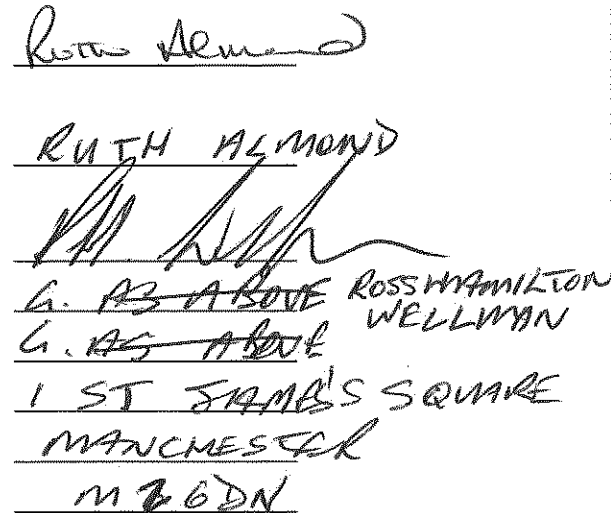 Ruth Almond
RUTH ALMOND
G. AS ABOVE ROSS HAMILTON
WELLMAN
G. AS ABOVE
1 ST JAMES'S SQUARE
MANCHESTER
M2 6DN